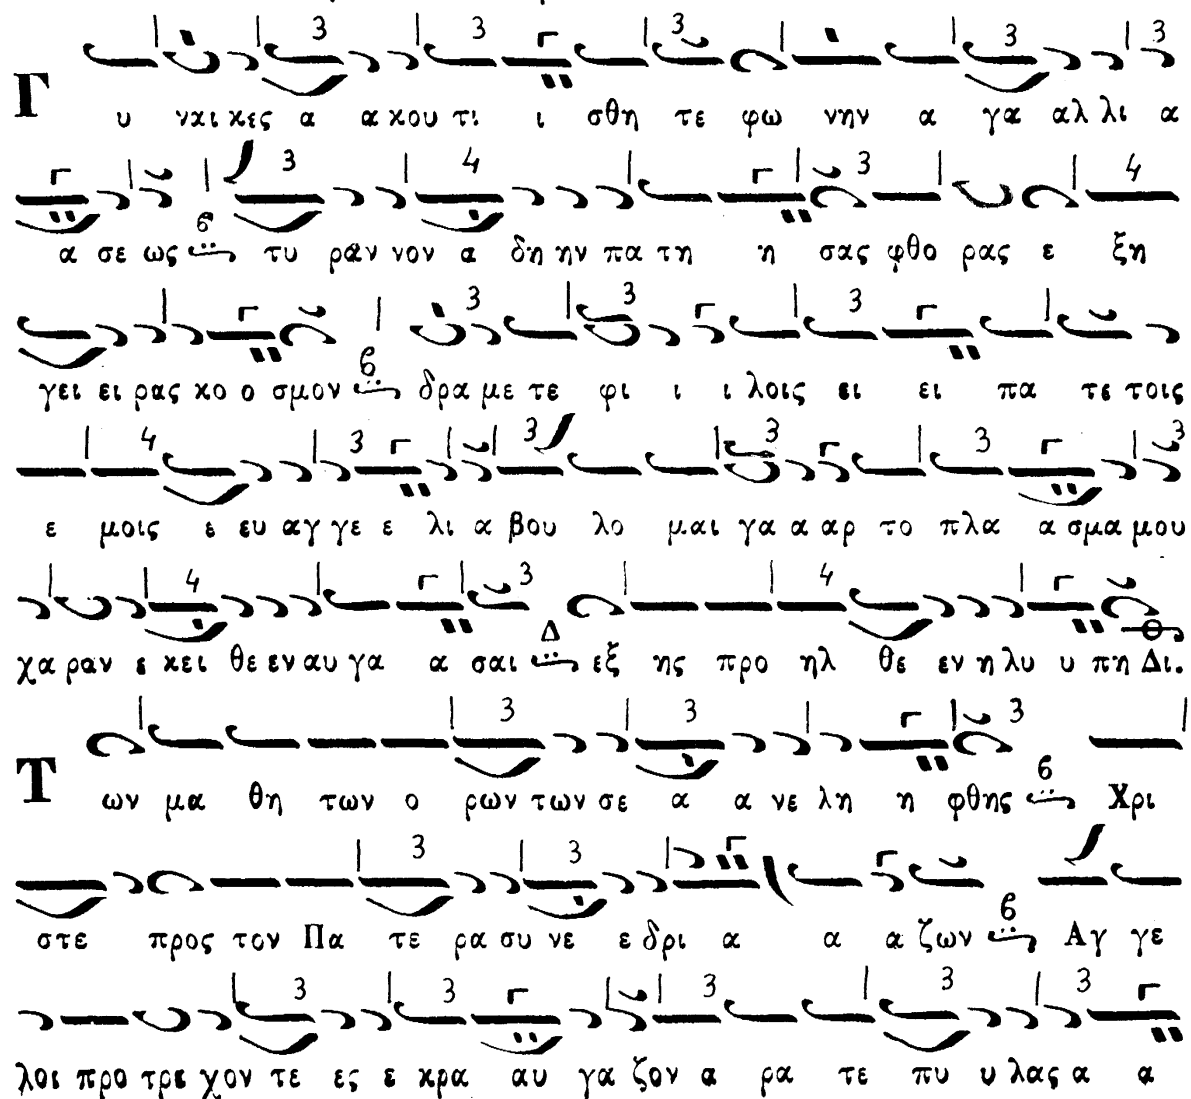 Γ υ ναι κες α α κου τι ι σθη τε φω νην α γα αλ λι α
α σε ως τυ ραν νον α δη ην πα τη η σας φθο ρας ε ξη
γει ει ρας κο ο σμον δρα με τε φι ι ι λοις ει ει πα τε τοις
ε μοις ε ευ αγ γε ε λι α βου λο μαι γα α αρ το πλα α σμα μου
χα ραν ε κει θε εν αυ γα α σαι εξ ης προ ηλ θε εν η λυ υ πη Δι.
Τ ων μα θη των ο ρων των σε α α νε λη η φθης Χρι
στε προς τον Πα τε ρα συ νε ε δρι α α α ζων Αγ γε
λοι προ τρε χον τε ες ε κρα αυ γα ζον α ρα τε πυ υ λας α α